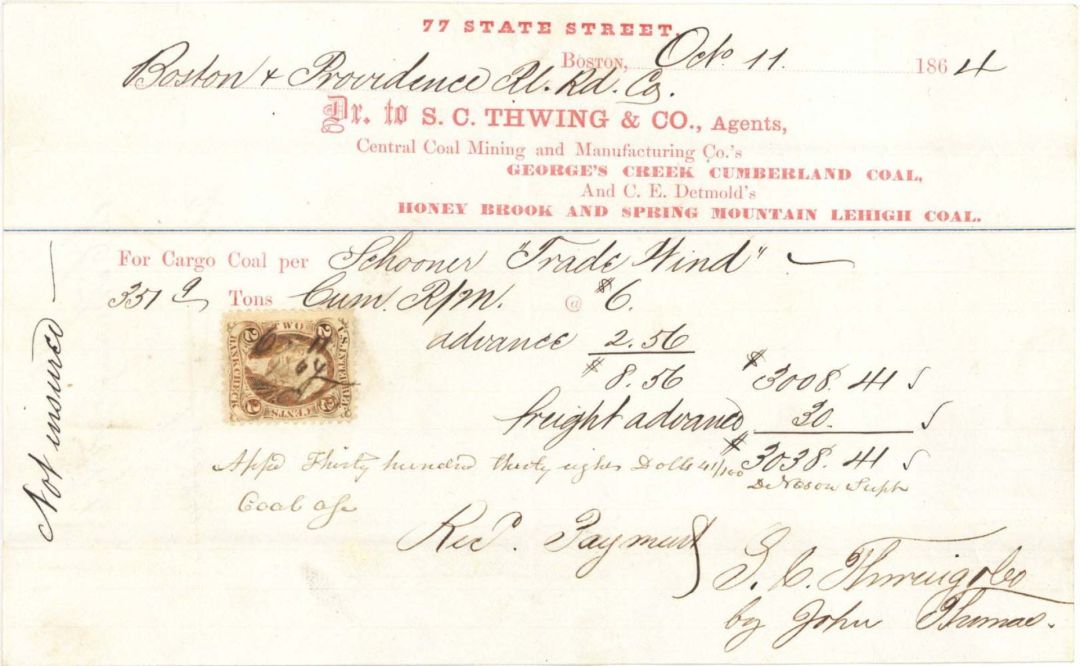 77 STATE STREET,
BOSTON, Oct. 11. 1864
Boston & Providence Rl. Rd. Co.
Dr. to S. C. THWING & CO., Agents,
Central Coal Mining and Manufacturing Co.'s
GEORGE'S CREEK CUMBERLAND COAL,
And C. E. Detmold's
HONEY BROOK AND SPRING MOUNTAIN LEHIGH COAL.
For Cargo Coal per Schooner "Trade Wind"
351 9 Tons Cum. R/m. @ $6.
advance 2.56
$8.56 $3008.41
freight advanced 30.
$3038.41
Appd Thirty hundred thirty eight Dolls 41/100
Coal a/c
Recd. Payment
S. C. Thwing & Co
by John Thomas.
Not insured
U.S. INTER. REV.
TWO
BANK CHECK
CENTS
2 2 2 2
64